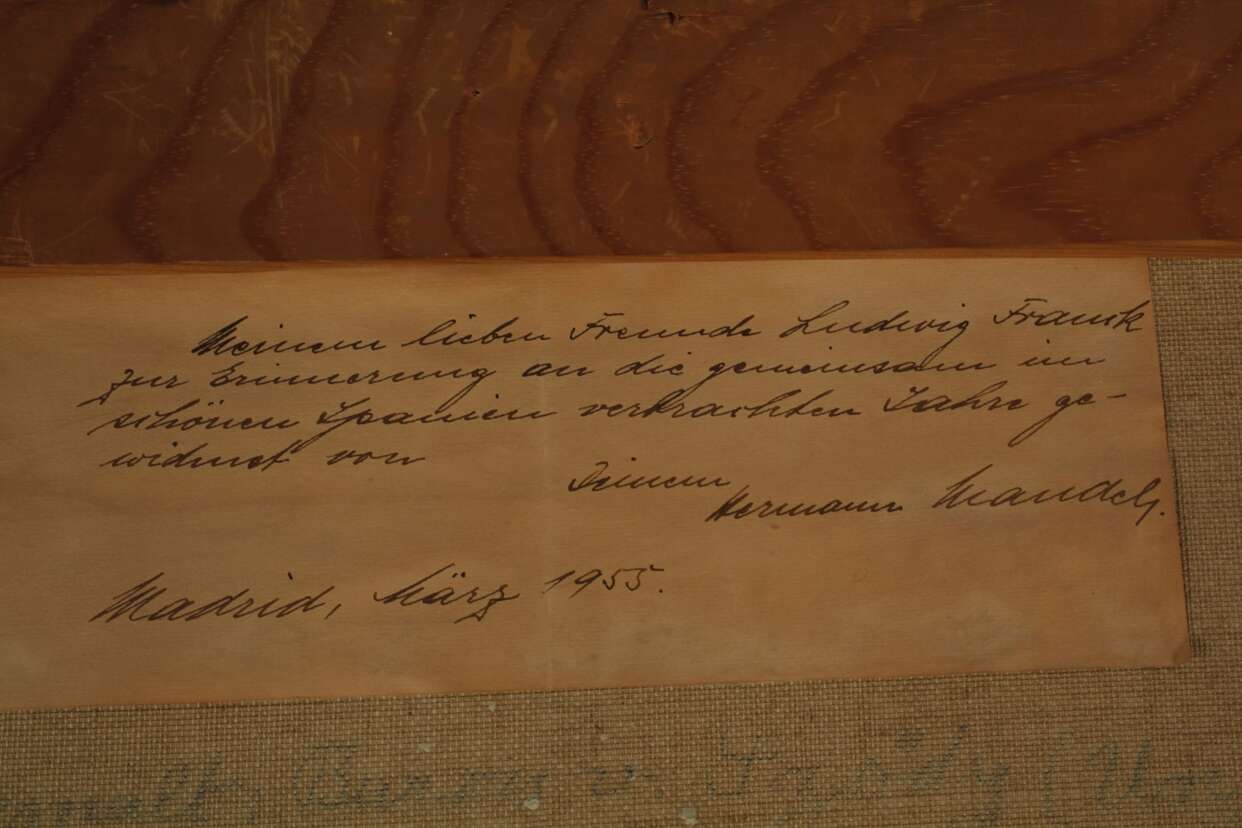 Meinem lieben Freunde Ludwig Frank
zur Erinnerung an die gemeinsam im
schönen Spanien verbrachten Jahre ge-
widmet von
Deinem
Hermann Mandel.
Madrid, März 1955.